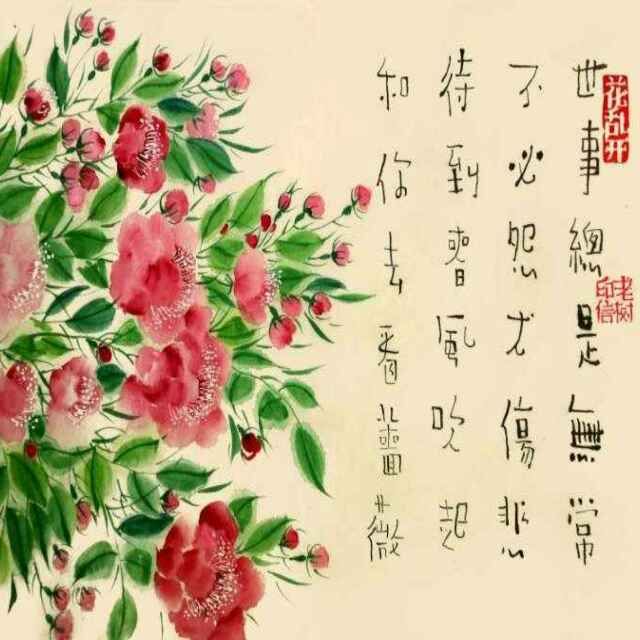 花乱开
世事總是無常
不必怨尤傷悲
待到春風吹起
和你去看薔薇
老树
印信